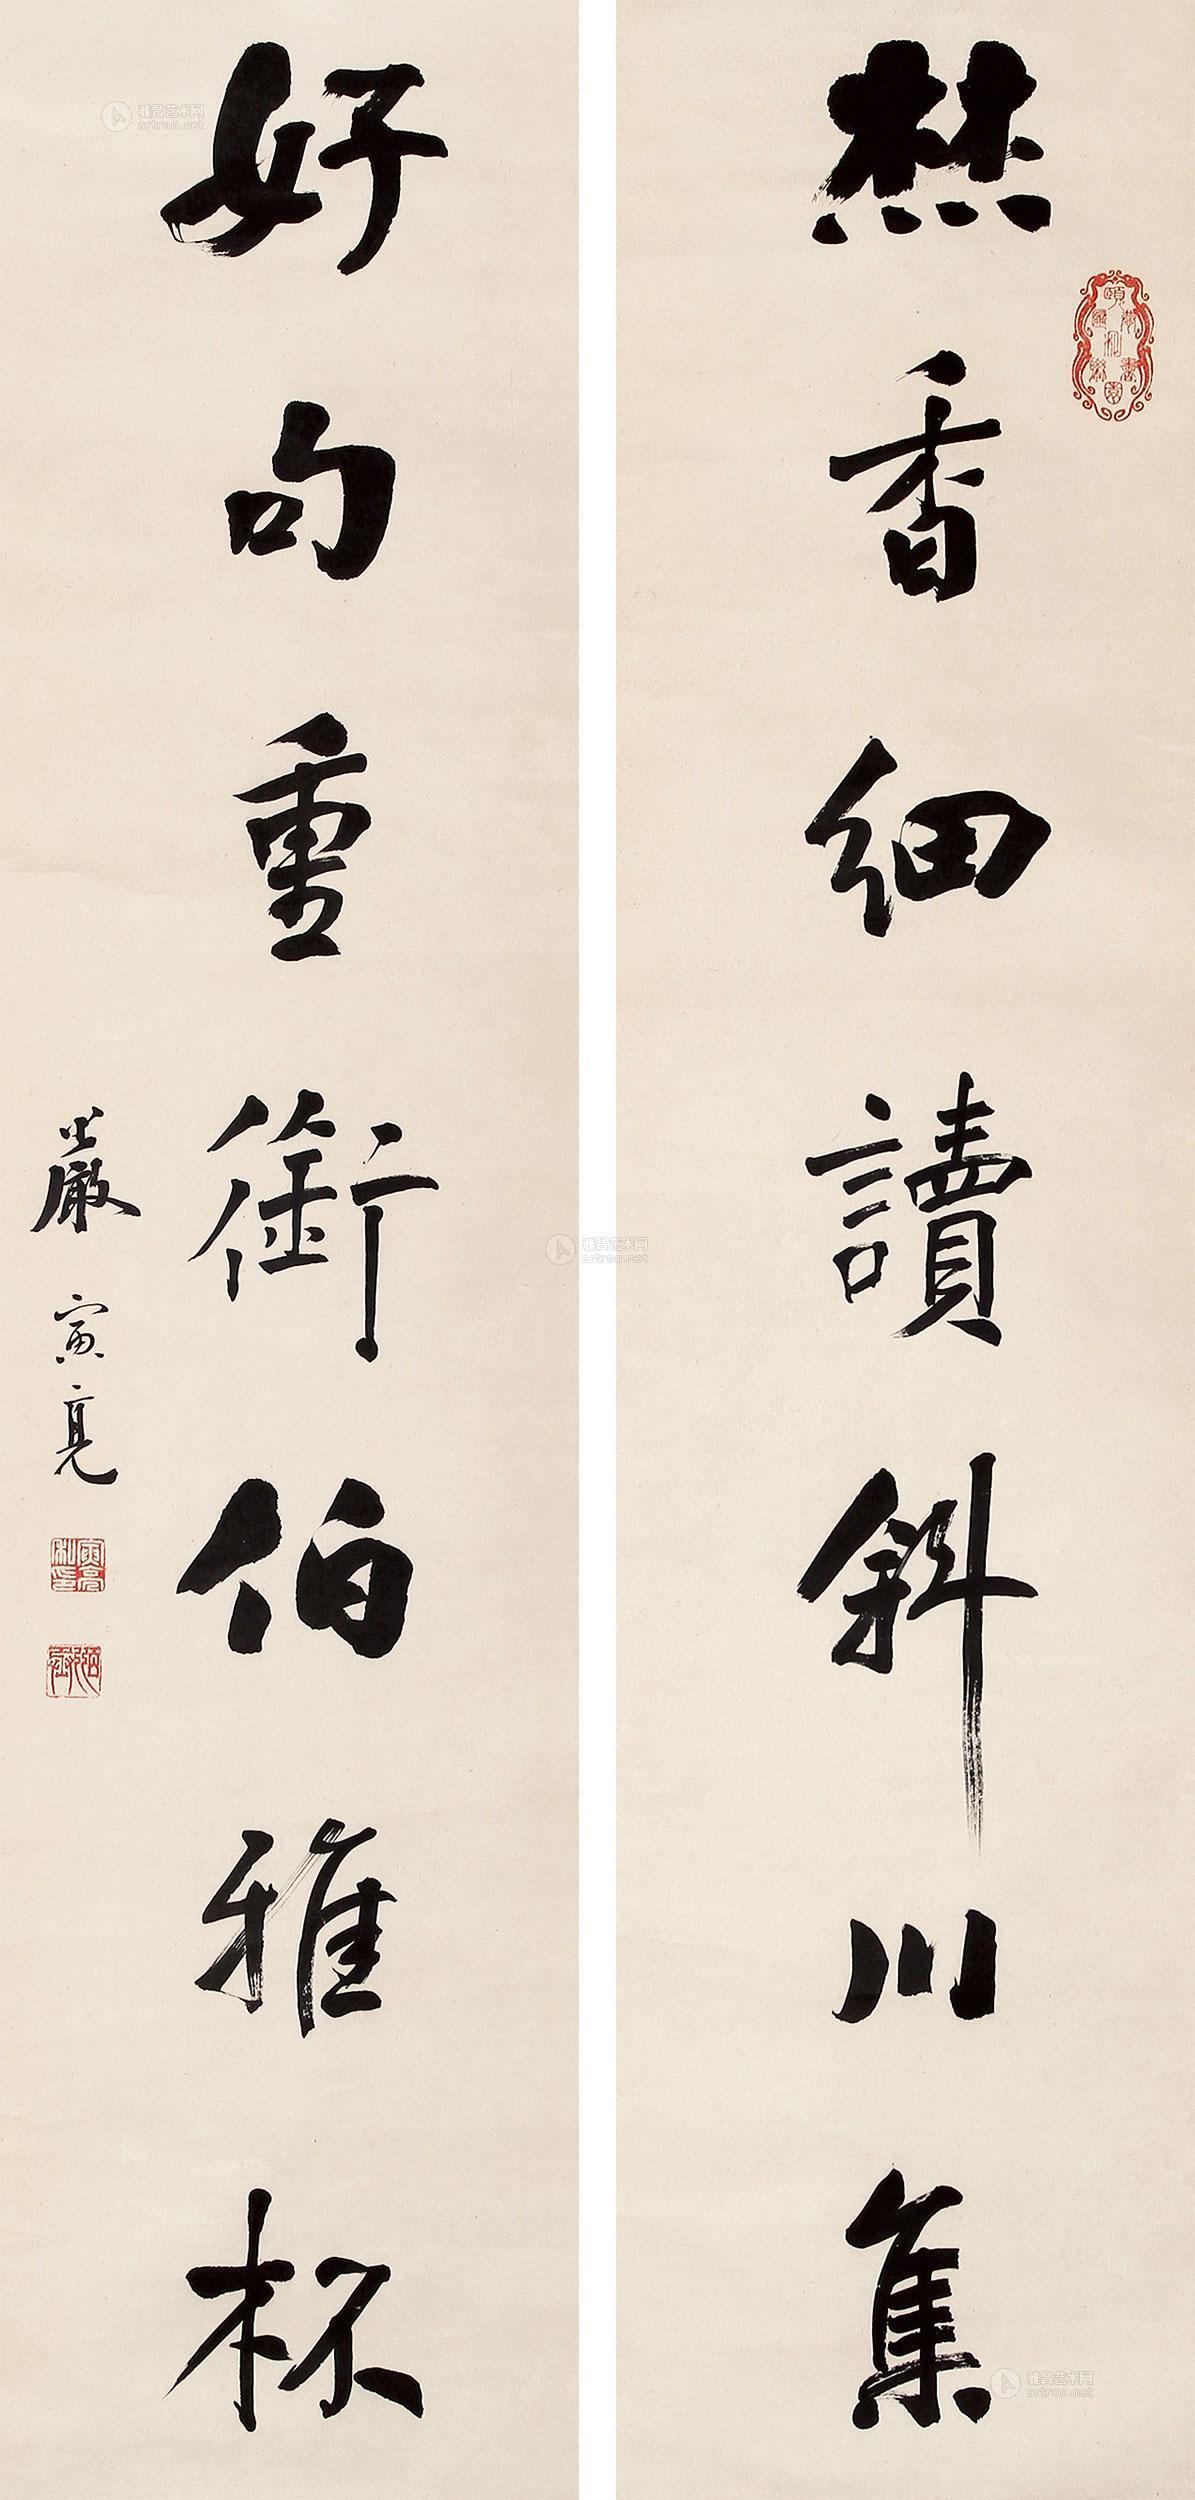 焚香細讀斜川集
好句重銜伯雅杯
嚴寅亮
寅亮私印
雅昌艺术网
artron.net
雅昌艺术网
artron.net
雅昌艺术网
artron.net